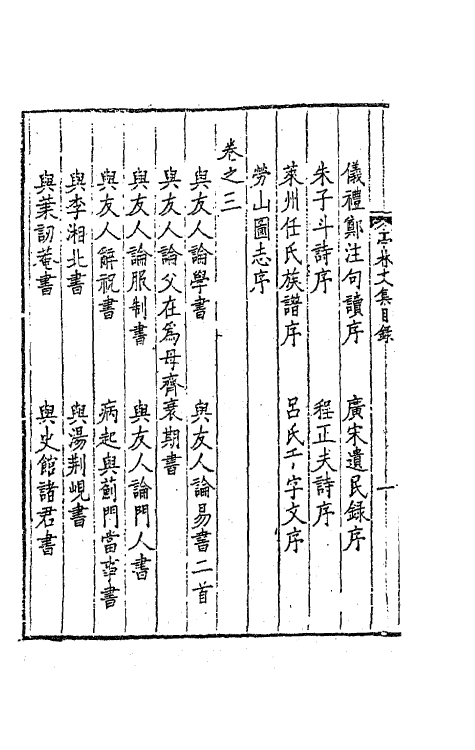 亭林文集目錄
一
儀禮鄭注句讀序　廣宋遺民錄序
朱子斗詩序　程正夫詩序
萊州任氏族譜序　呂氏千字文序
勞山圖志序
卷之三
與友人論學書　與友人論易書二首
與友人論父在為母齊衰期書
與友人論服制書　與友人論門人書
與友人辭祝書　病起與薊門當事書
與李湘北書　與湯荆峴書
與葉訒菴書　與史館諸君書